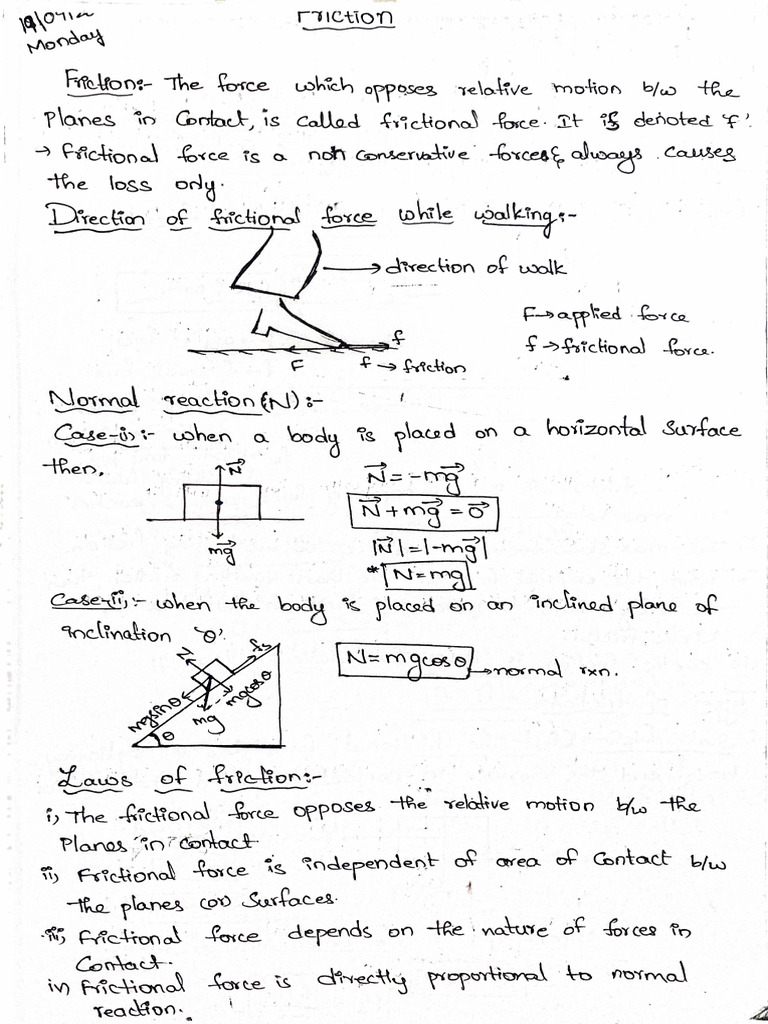 19/04/22
Monday
Friction
Friction:- The force which opposes relative motion b/w the
Planes in Contact, is called frictional force. It is denoted 'f'.
→ Frictional force is a non conservative forces & always causes
the loss only.
Direction of frictional force while walking:-
→ direction of walk
F → applied force
f → frictional force.
f
F
f → friction
Normal reaction (N) :-
Case-i) :- when a body is placed on a horizontal Surface
then,
N⃗
mg⃗
N⃗ = -mg⃗
N⃗ + mg⃗ = 0⃗
|N⃗| = |-mg⃗|
* N = mg
Case-ii) :- when the body is placed on an inclined plane of
inclination 'θ'.
N
fs
mgsinθ
mg
mgcosθ
θ
N = mgcosθ → normal rxn.
Laws of friction:-
i) The frictional force opposes the relative motion b/w the
Planes in contact.
ii) Frictional force is independent of area of Contact b/w
the planes (or) Surfaces.
iii) Frictional force depends on the nature of forces in
Contact.
iv) Frictional force is directly proportional to normal
reaction.